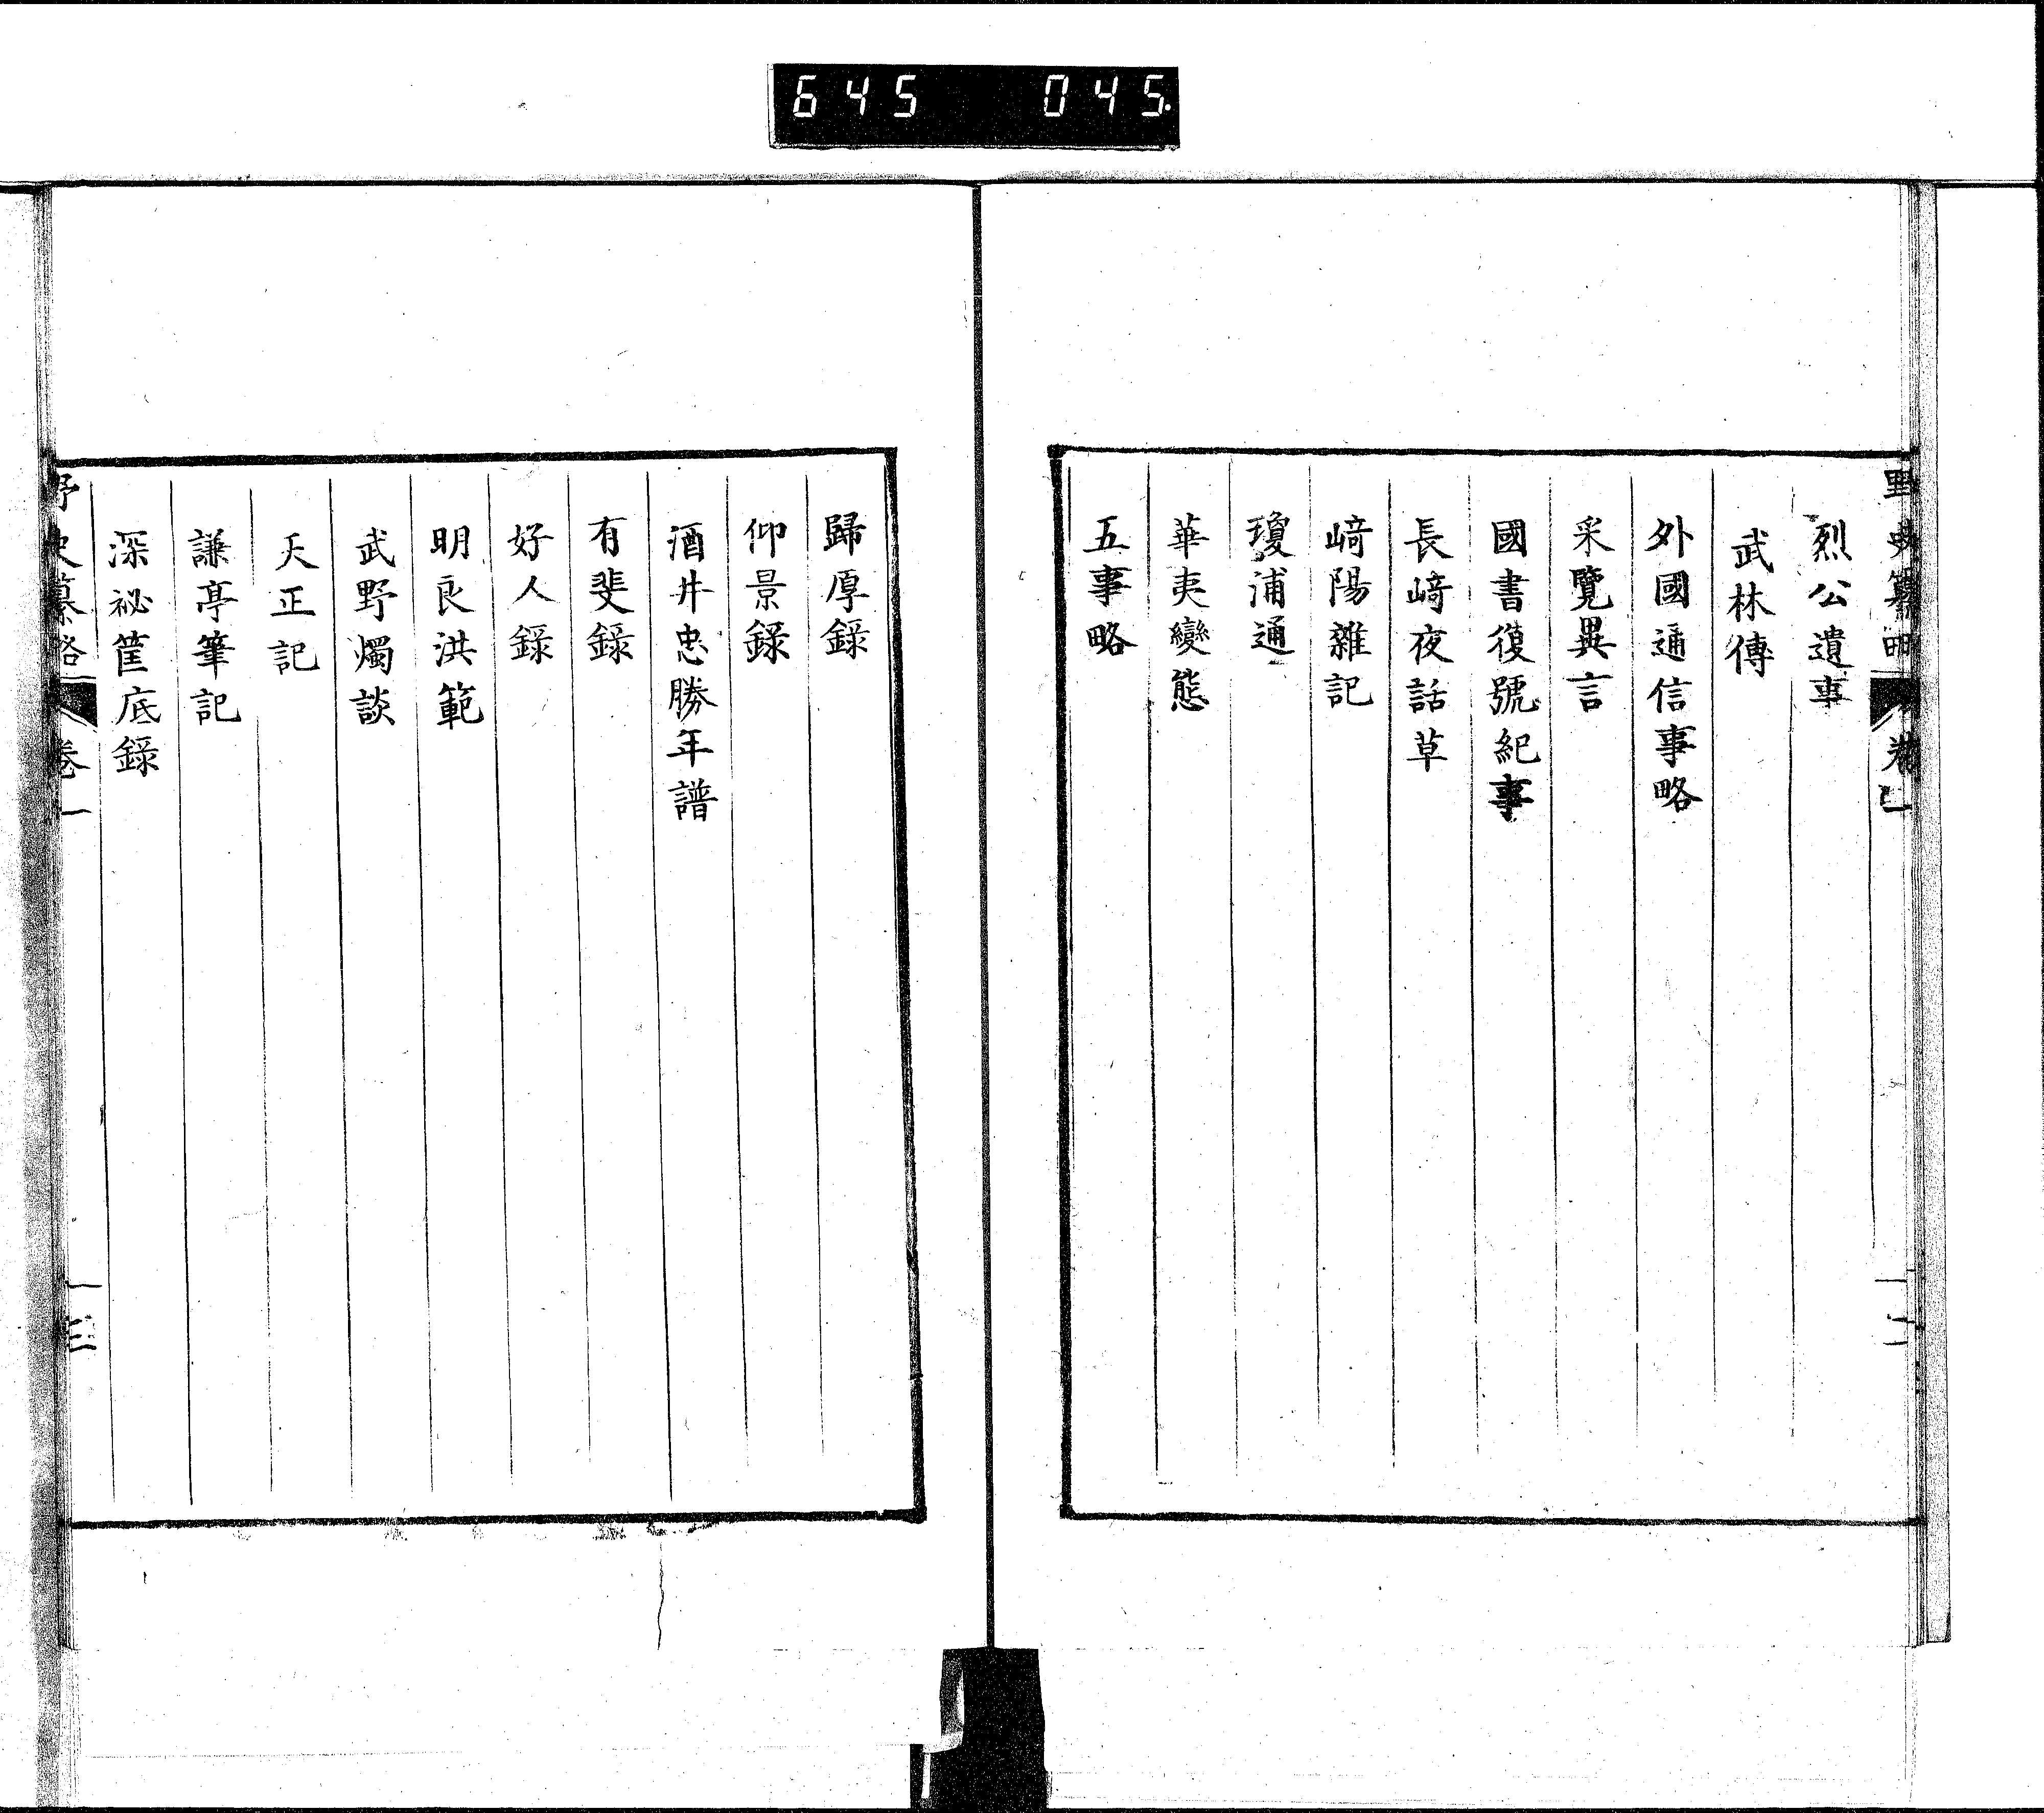 645 045.
烈公遺事
武林傳
外國通信事略
采覽異言
國書復號紀事
長﨑夜話草
﨑陽雜記
瓊浦通
華夷變態
五事略
歸厚錄
仰景錄
酒井忠勝年譜
有斐錄
好人錄
明良洪範
武野燭談
天正記
謙亭筆記
深祕筐底錄